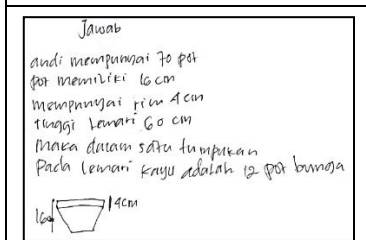 Jawab
andi mempunyai 70 pot
pot memiliki 16 cm
mempunyai rim 4 cm
tinggi lemari 60 cm
maka dalam satu tumpukan
Pada lemari kayu adalah 12 pot bunga
16
4cm